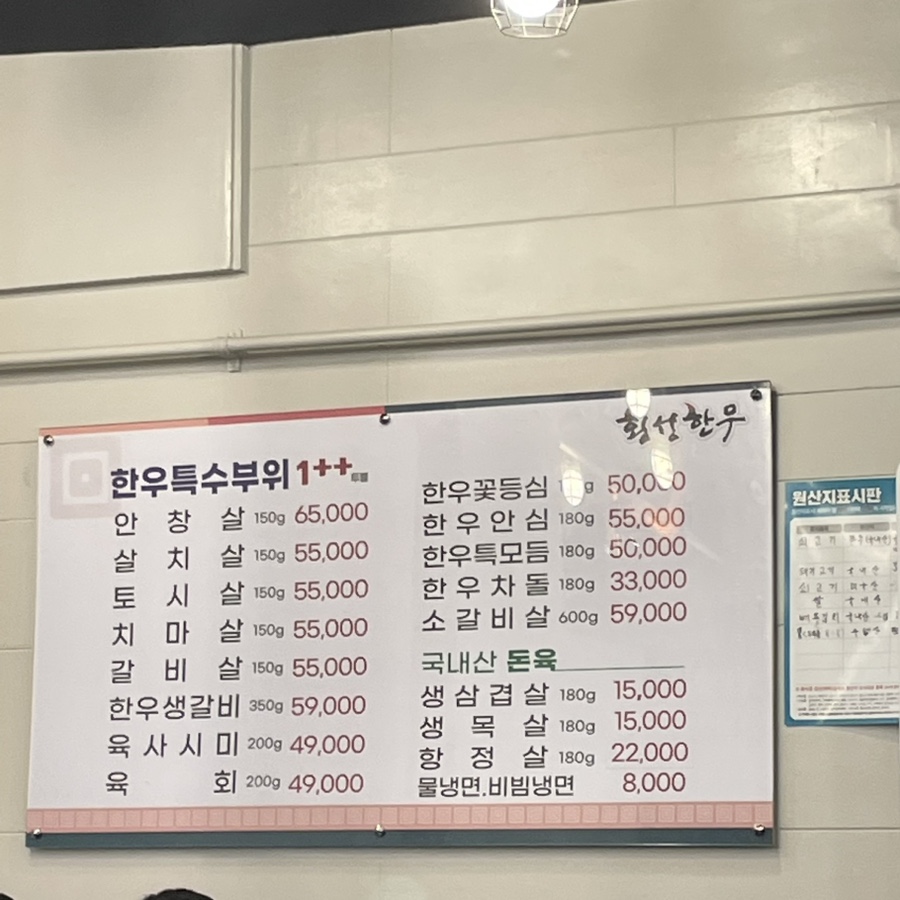 횡성한우
한우특수부위 1++
안창살 150g 65,000
살치살 150g 55,000
토시살 150g 55,000
치마살 150g 55,000
갈비살 150g 55,000
한우생갈비 350g 59,000
육사시미 200g 49,000
육회 200g 49,000
한우꽃등심 50,000
한우안심 180g 55,000
한우특모듬 180g 50,000
한우차돌 180g 33,000
소갈비살 600g 59,000
국내산 돈육
생삼겹살 180g 15,000
생목살 180g 15,000
항정살 180g 22,000
물냉면.비빔냉면 8,000
원산지표시판
쇠고기
돼지고기 국내산
쇠고기
쌀